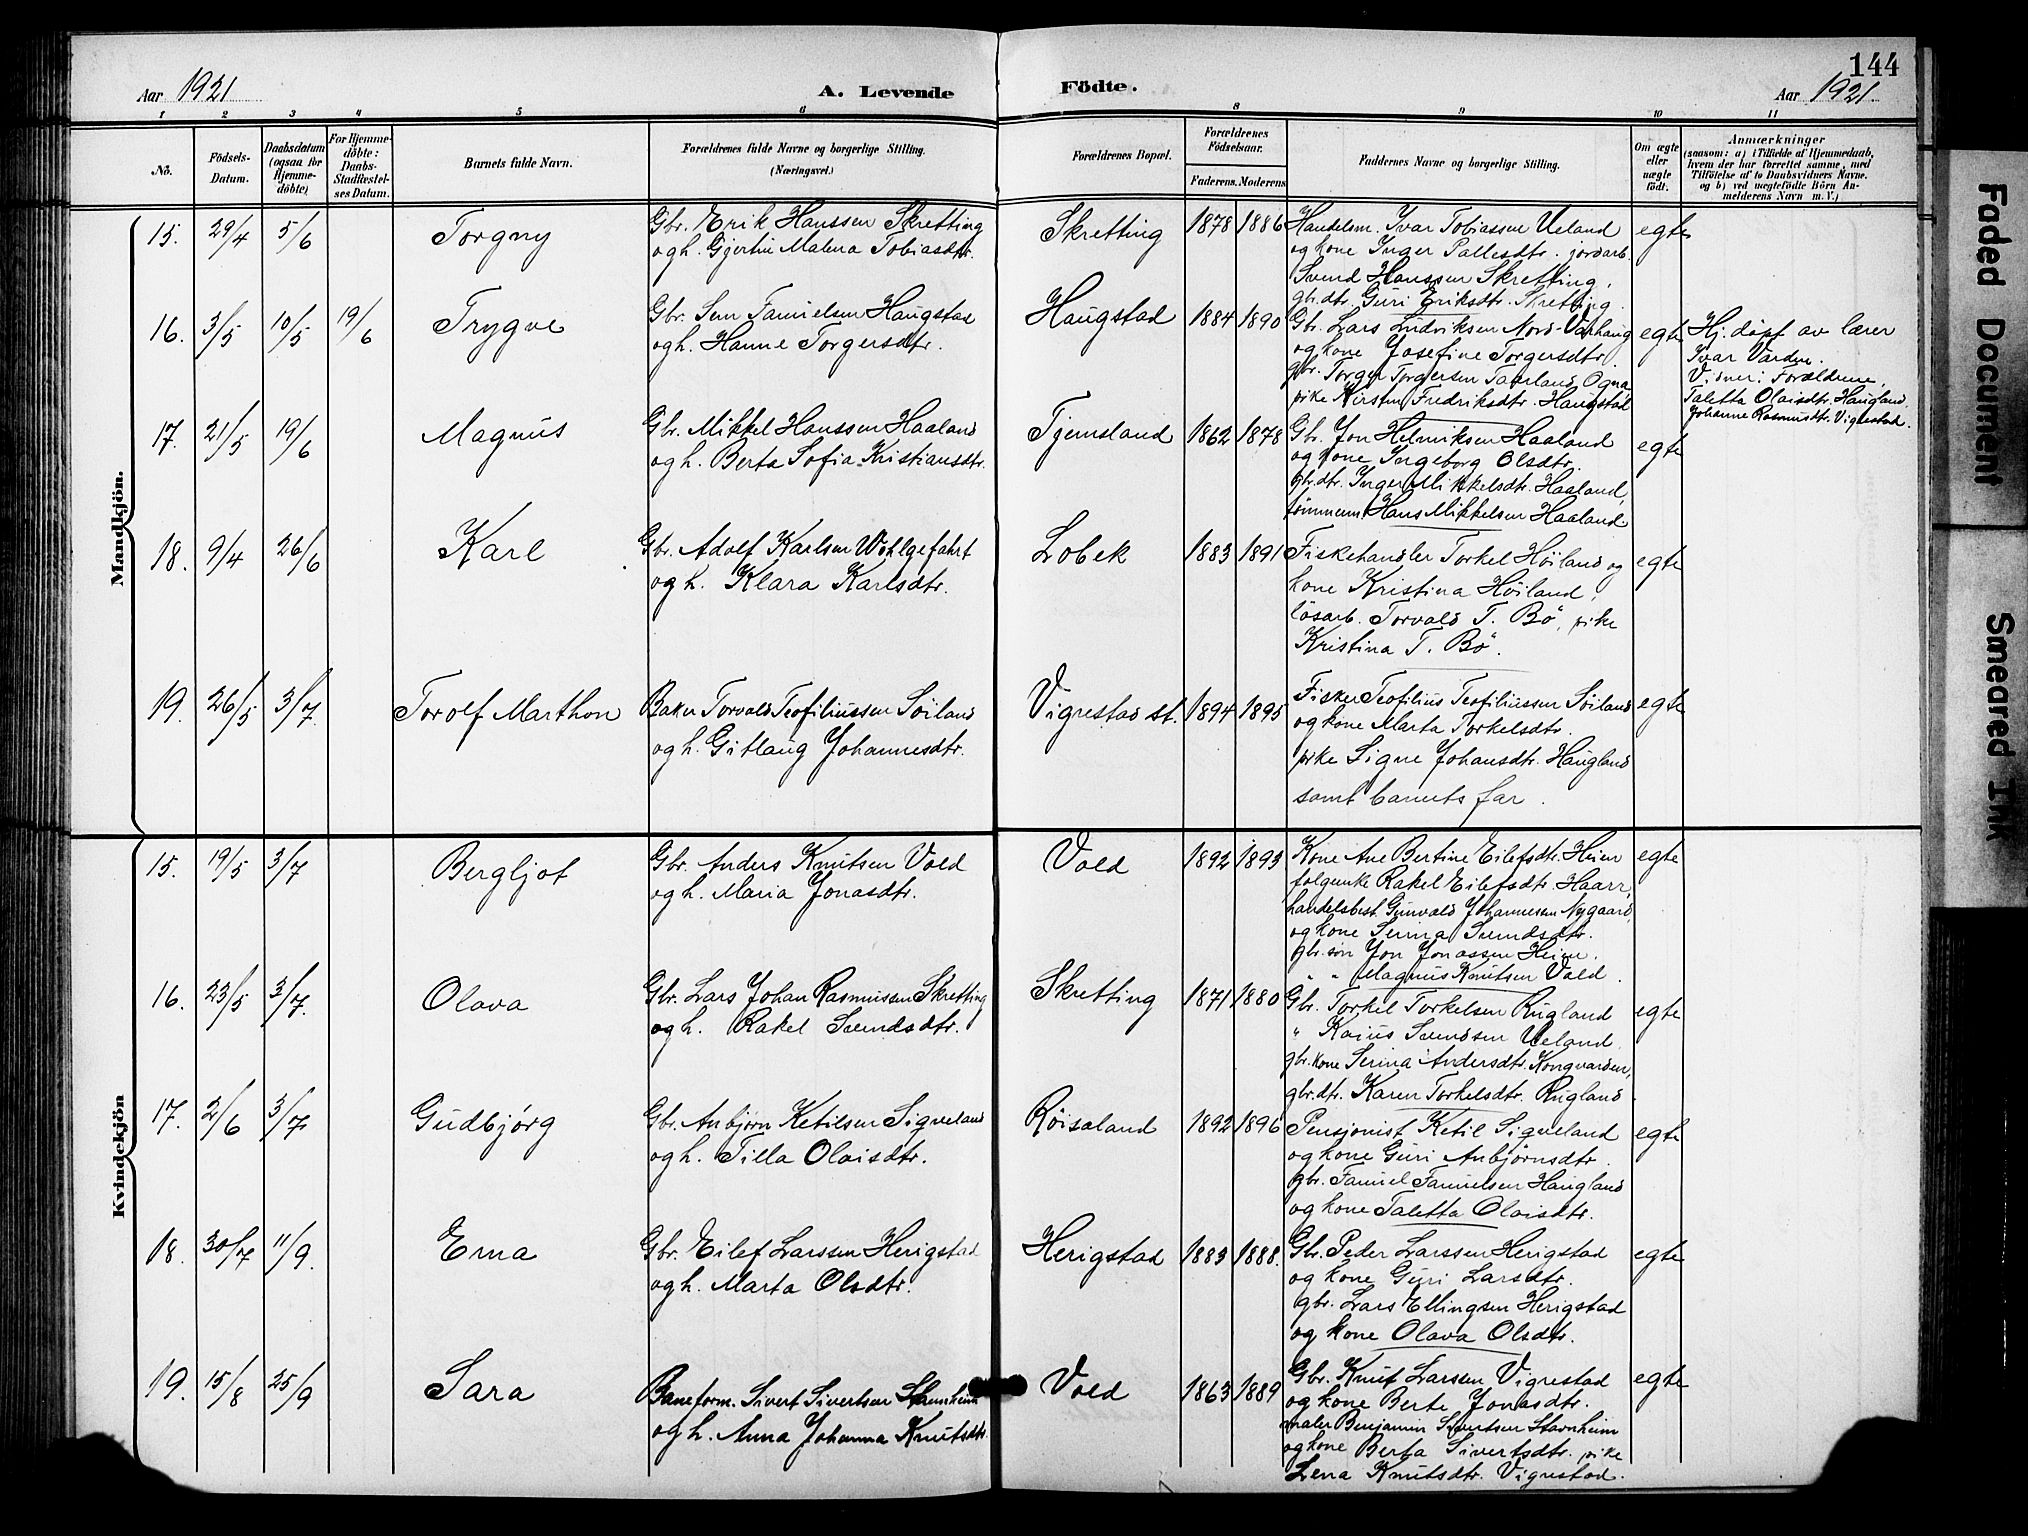 144
Aar 1921 A. Levende Födte. Aar 1921.
1 2 3 4 5 6 8 9 10 11
No.
Födsels-
Datum.
Daabsdatum
(ogsaa for
Hjemme-
döbte)
For Hjemme-
döbte:
Daabs-
Stadfæstel-
ses Datum.
Barnets fulde Navn.
Forældrenes fulde Navne og borgerlige Stilling.
(Næringsvei.)
Forældrenes Bopæl.
Forældrenes
Födselsaar.
Faderens. Moderens
Faddernes Navne og borgerlige Stilling.
Om ægte
eller
uægte
födt.
Anmærkninger
(saasom: a) i Tilfælde af Hjemmedaab,
hvem der har forrettet samme, med
Tilföielse af to Daabsvidners Navne.
og b) ved uægtefödte Börn An-
melderens Navn m. V.)
Mandkjön.
15. 29/4 5/6 Torgny
Gbr. Erik Hanssen Skretting
og h. Gjertine Malena Tobiasdtr.
Skretting 1878 1886
Handelsm. Ivar Tobiassen Ueland
og kone Inger Pallesdtr. jordarb.
Svend Hanssen Skretting,
gbr.dtr. Guri Eriksdtr. Skretting.
egte
16. 3/5 10/5 19/6 Trygve
Gbr. Sem Famielsen Haugstad
og h. Hanne Torgersdtr.
Haugstad 1884 1890
Gbr. Lars Ludviksen Nord-Varhaug
og kone Josefine Torgersdtr.
gbr. Torger Torgersen Taarland, Ogna
pike Kirsten Fredriksdtr. Haugstad
egte
Hj. døpt av lærer
Ivar Varden.
Vidner: Forældrene,
Taletta Olaisdtr. Haugland,
Johanne Rasmusdtr. Vigrestad.
17. 21/5 19/6 Magnus
Gbr. Mikkel Hanssen Haaland
og h. Berta Sofia Kristiansdtr.
Tjemsland 1862 1878
Gbr. Jon Helmiksen Haaland
og kone Ingeborg Olsdtr.
gbr.dtr. Inger Mikkelsdtr. Haaland,
tømmerm. Hans Mikkelsen Haaland
egte
18. 9/4 26/6 Karl
Gbr. Adolf Karlsen Wohlgefahrt
og h. Klara Karlsdtr.
Lobek 1883 1891
Fiskehandler Torkel Höiland og
kone Kristina Höiland,
lösarb. Torvald T. Bö, pike
Kristina T. Bö.
egte
19. 26/5 3/7. Torolf Marthon
Baker Torvald Teofiliussen Söiland
og h. Gitlaug Johannesdtr.
Vigrestad st. 1894 1895
Fisker Teofilius Teofiliussen Söiland
og kone Marta Torkelsdtr.
pike Signe Johansdtr. Haugland
samt barnets far.
egte
Kvindekjön
15. 19/5 3/7 Bergljot
Gbr. Anders Knutsen Vold
og h. Maria Jonasdtr.
Vold 1892 1893
Kone Ane Bertine Eilefsdtr. Heien
folgenke Rakel Eilefsdtr. Haarr,
handelsbest. Gunvald Johannesen Nygaard,
og kone Serina Svendsdtr.
gbr.søn Jon Jonassen Heien.
" " Magnus Knutsen Vold.
egte
16. 23/5 3/7. Olava
Gbr. Lars Johan Rasmussen Skretting
og h. Rakel Svendsdtr.
Skretting 1871 1880
Gbr. Torkel Torkelsen Rugland
" Kaius Svendsen Ueland.
gbr.kone Serina Andersdtr. Kongvarden,
gbr.dtr. Karen Torkelsdtr. Rugland.
egte
17. 2/6 3/7 Gudbjørg
Gbr. Anbjørn Ketilsen Sigveland
og h. Tilla Olaisdtr.
Röisoland 1892 1896
Pensjonist Ketil Sigveland
og kone Guri Anbjørnsdtr.
gbr. Famiel Famielsen Haugland
og kone Taletta Olaisdtr.
egte
18. 30/7 11/9. Erna
Gbr. Eilef Larssen Herigstad
og h. Marta Olsdtr.
Herigstad 1883 1888.
Gbr. Peder Larssen Herigstad
og kone Guri Larsdtr.
gbr. Lars Ellingsen Herigstad
og kone Olava Olsdtr.
egte
19. 15/8 25/9 Sara
Baneform. Sivert Sivertsen Stavnheim
og h. Anna Johanna Knutsdtr.
Vold 1863 1889
Gbr. Knut Larssen Vigrestad
og kone Berte Jonasdtr.
maler Benjamin Sivertsen Stavnheim
og kone Berta Sivertsdtr. pike
Lena Knutsdtr. Vigrestad.
egte
Faded Document
Smeared Ink